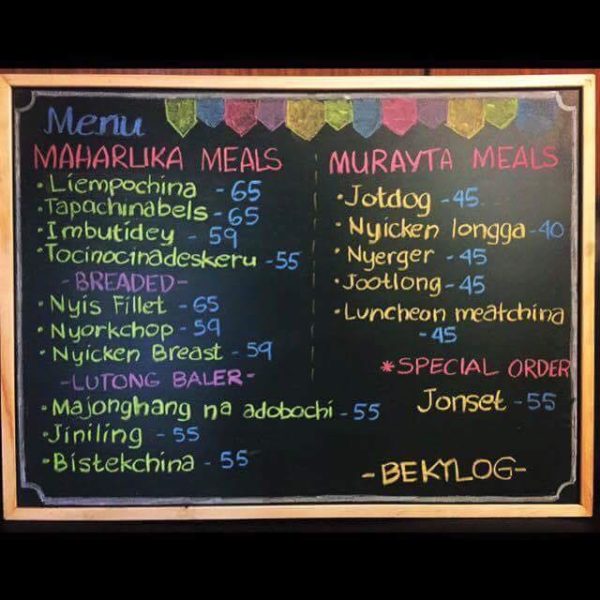 Menu
MAHARLIKA MEALS
• Liempochina - 65
• Tapachinabels - 65
• Imbutidey - 59
• Tocinocinadeskeru - 55
- BREADED -
• Nyis Fillet - 65
• Nyorkchop - 59
• Nyicken Breast - 59
- LUTONG BALER -
• Majonghang na adobochi - 55
• Jiniling - 55
• Bistekchina - 55
MURAYTA MEALS
• Jotdog - 45
• Nyicken longga - 40
• Nyerger - 45
• Jootlong - 45
• Luncheon meatchina
- 45
* SPECIAL ORDER
Jonset - 55
- BEKYLOG -